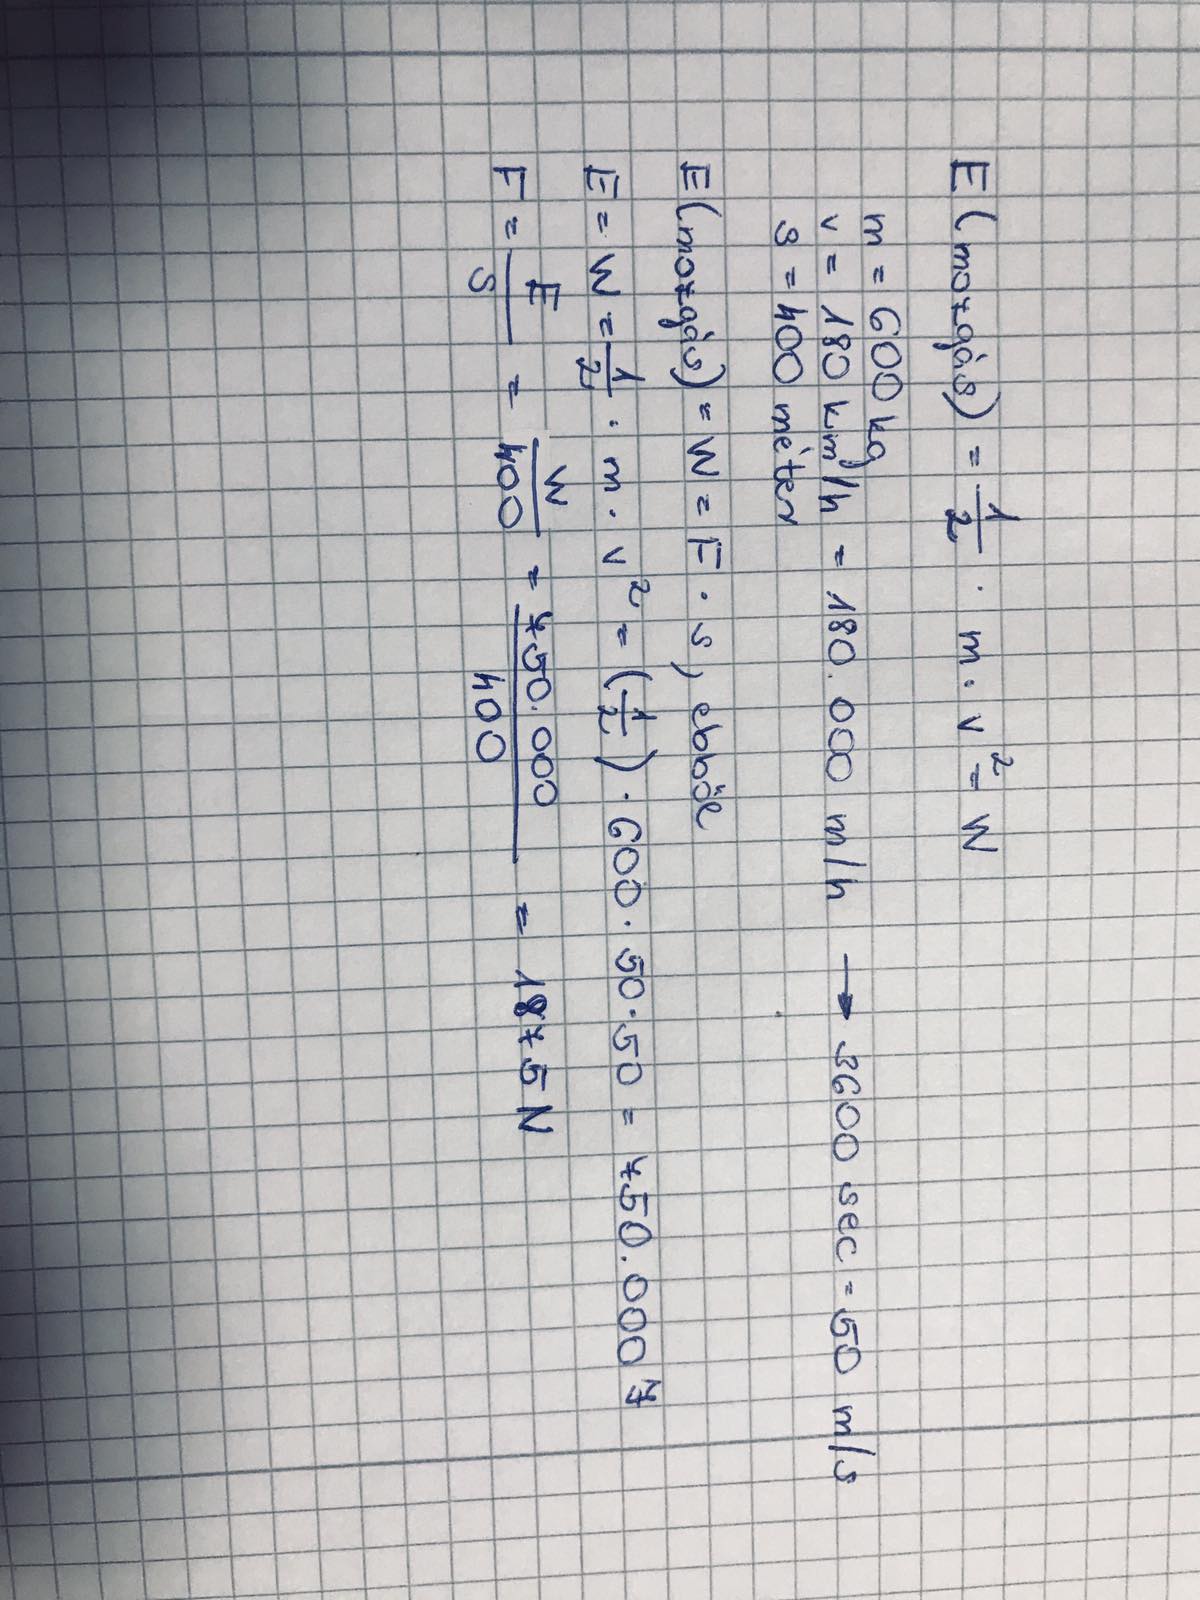 E (mozgás) = 1/2 · m · v² = W
m = 600 kg
v = 180 km/h = 180.000 m/h → 3600 sec = 50 m/s
s = 400 méter
E (mozgás) = W = F · s, ebből
E = W = 1/2 · m · v² = (1/2) · 600 · 50 · 50 = 750.000 J
F = E/S = W/400 = 750.000/400 = 1875 N